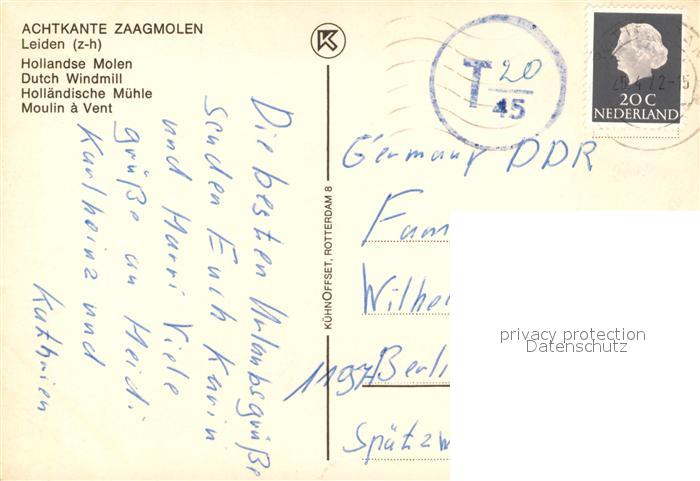 ACHTKANTE ZAAGMOLEN
Leiden (z-h)
Hollandse Molen
Dutch Windmill
Holländische Mühle
Moulin à Vent
Die besten Urlaubsgrüße
senden Euch Karin
und Harri Viele
grüße an Heidi
Karlheinz und
Kathrien
KÜHNOFFSET, ROTTERDAM 8
K
T 20
45
20 C
NEDERLAND
Germany DDR
Fam
Wilhe
Berli
Spütz
privacy protection
Datenschutz